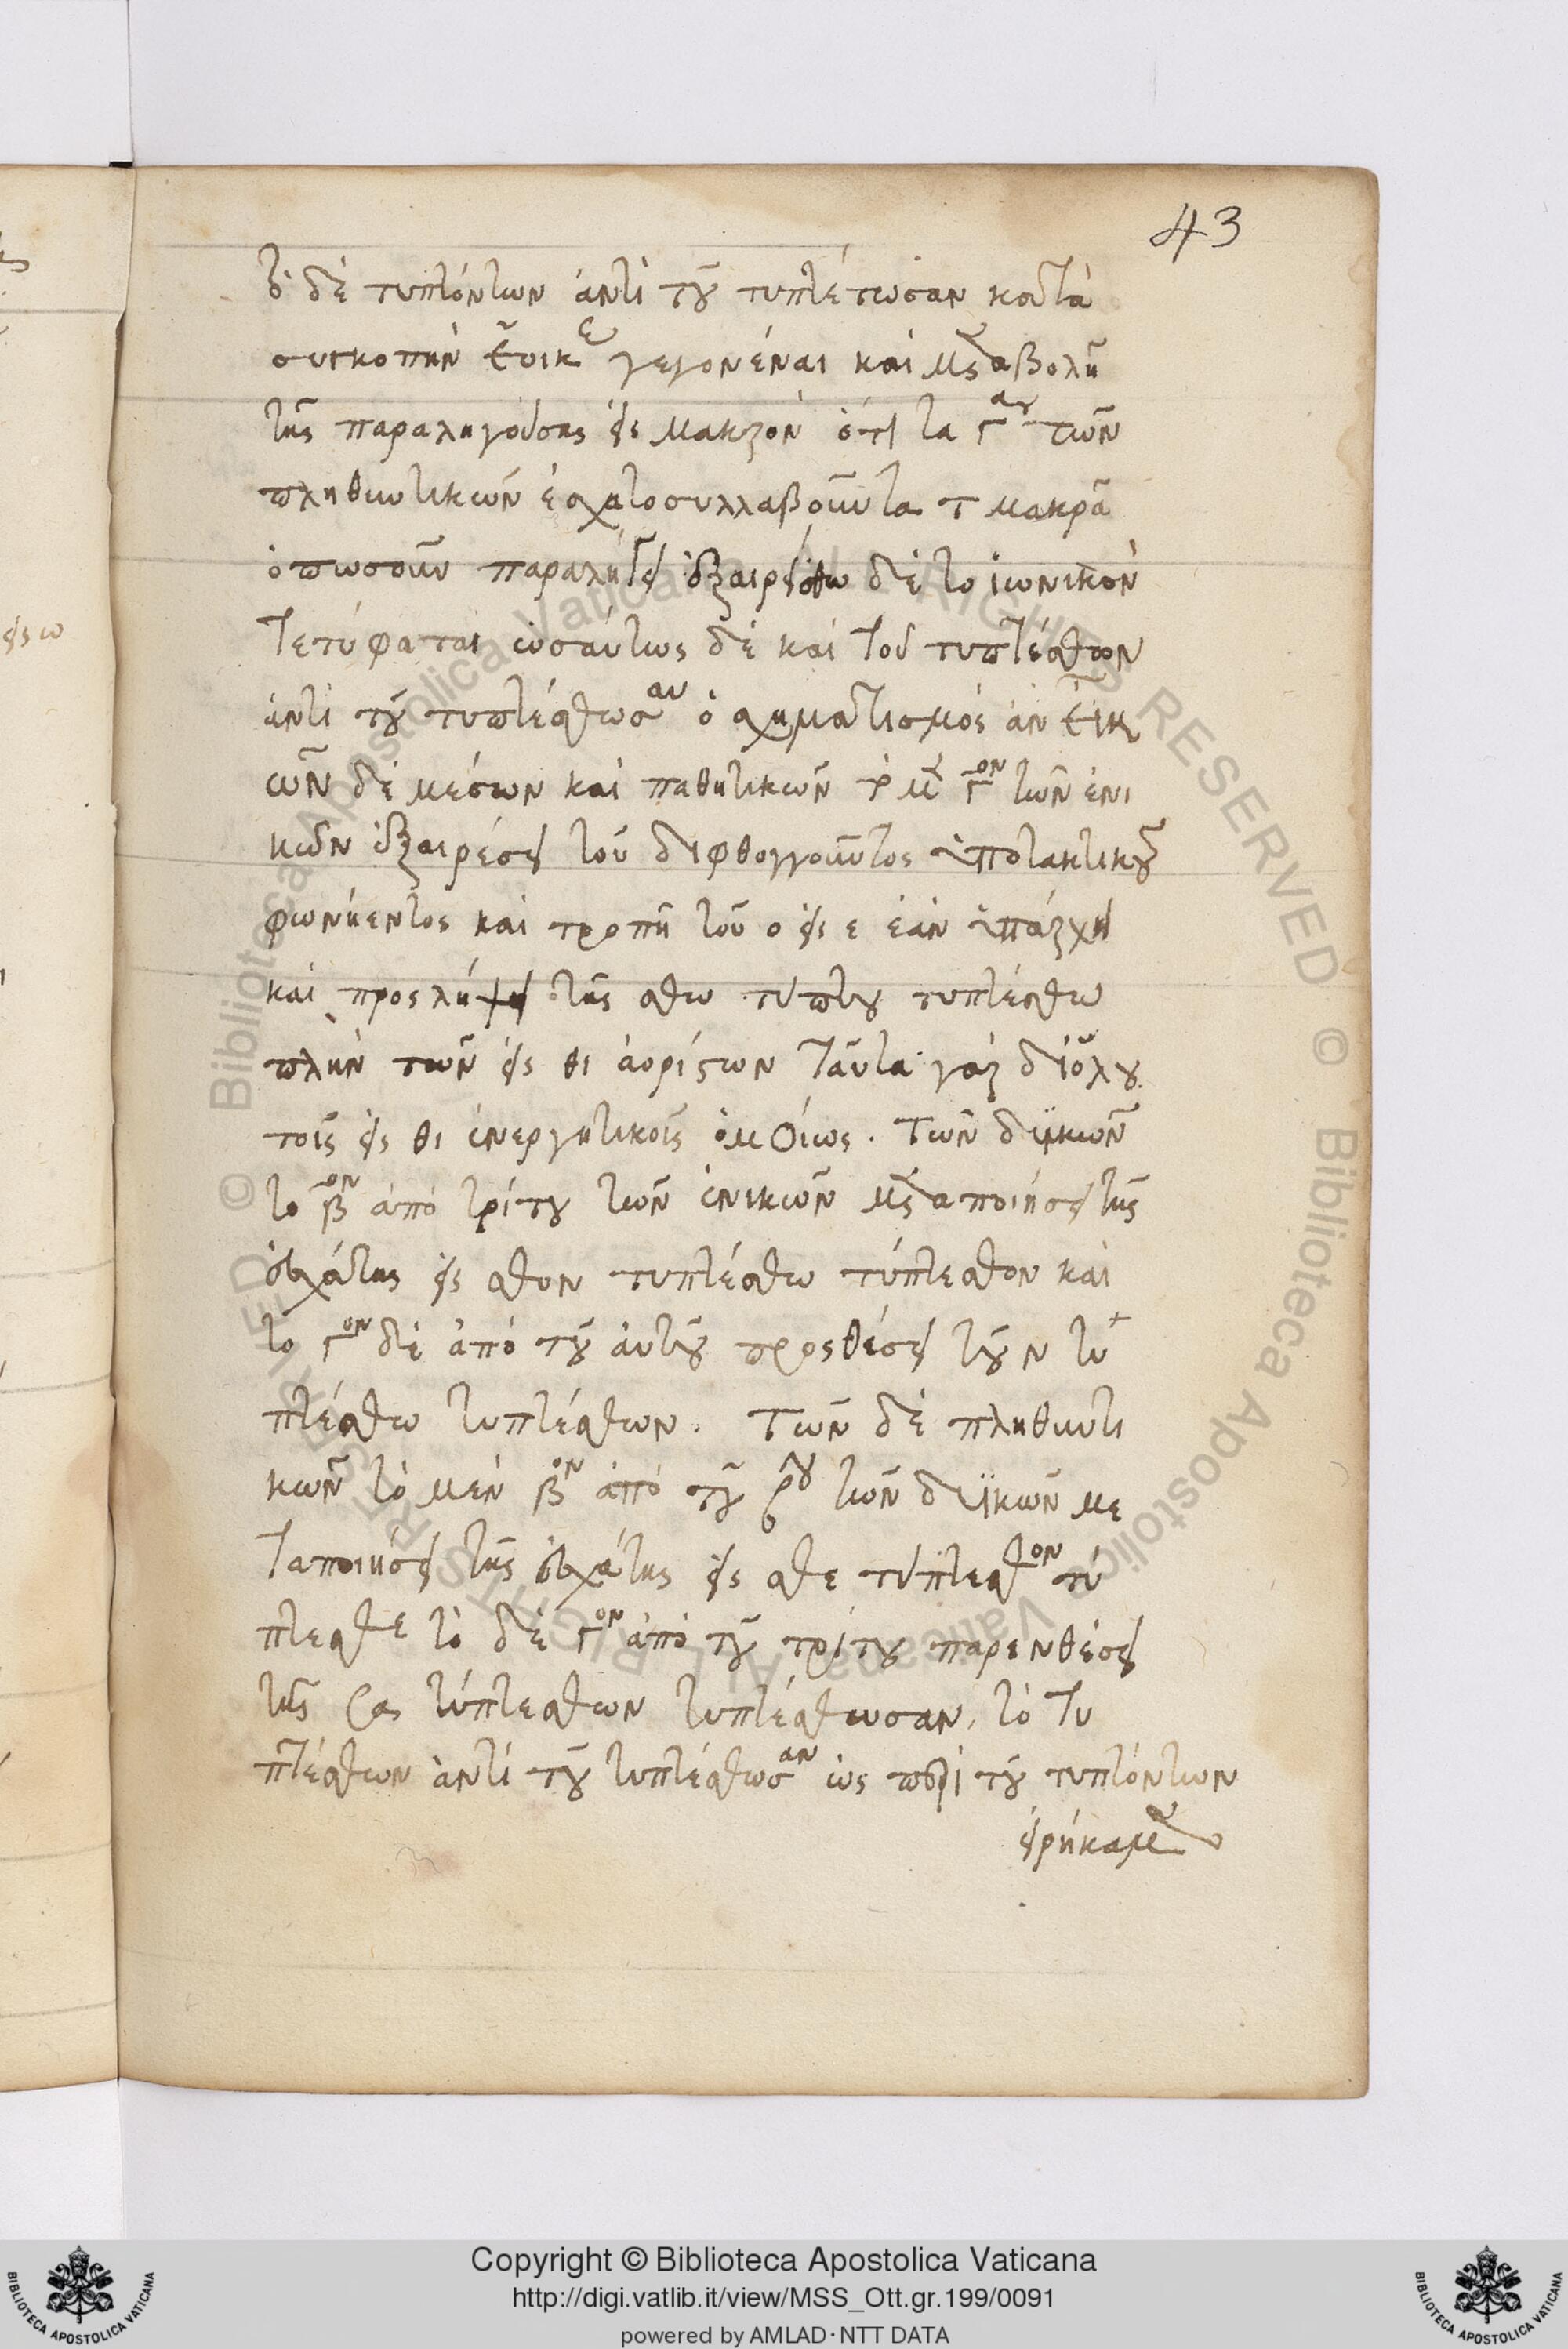 43
τὸ δὲ τυπτόντων ἀντὶ τοῦ τυπτέτωσαν κατὰ
συγκοπὴν ἔοικε γεγονέναι καὶ μεταβολῆ
τῆς παραληγούσης εἰς μακρὸν ὅτι τα γ τῶν
πληθυντικῶν ἐσχατοσυλλαβοῦντα μακρᾶ
ὁπωσοῦν παραλήγει ἐξαιρείσθω δὲ το ἰωνικὸν
τετύφαται ὡσαύτως δὲ καὶ τοῦ τυπτέσθων
ἀντὶ τοῦ τυπτέσθωσαν ὁ σχηματισμὸς ἀν
ῶν δὲ μέσων καὶ παθητικῶν γον τῶν ἑνι
κῶν ἐξαιρέσει τοῦ διφθογγοῦντος ὑποτακτικοῦ
φωνήεντος καὶ τροπῆ τοῦ ο εἰς ε ἐὰν ὑπάρχη
καὶ προσλήψει τῆς σθω τύπτου τυπτέσθω
πλὴν τῶν εἰς θι ἀορίστων ταῦτα γὰρ διόλου
τοῖς εἰς θι ἐνεργητικοῖς ὁμοίως. Τῶν δυϊκῶν
το βον ἀπὸ τρίτου τῶν ἑνικῶν μεταποιήσει τῆς
ἐσχάτης εἰς σθον τυπτέσθω τύπτεσθον καὶ
το γον δὲ ἀπὸ τοῦ αὐτοῦ προσθέσει τοῦ ν τυ
πτέσθω τυπτέσθων. Τῶν δὲ πληθυντι
κῶν τὸ μὲν βον ἀπὸ τοῦ βου τῶν δυϊκῶν με
ταποιήσει τῆς ἐσχάτης εἰς σθε τύπτεσθον τύ
πτεσθε τὸ δὲ γον ἀπὸ τοῦ τρίτου παρενθέσει
τῆς σας τύπτεσθων τυπτέσθωσαν, τὸ τυ
πτέσθων ἀντὶ τοῦ τυπτέσθωσαν ὡς περὶ τοῦ τυπτόντων
εἰρήκαμεν
Copyright © Biblioteca Apostolica Vaticana
http://digi.vatlib.it/view/MSS_Ott.gr.199/0091
powered by AMLAD·NTT DATA
BIBLIOTECA APOSTOLICA VATICANA
BIBLIOTECA APOSTOLICA VATICANA